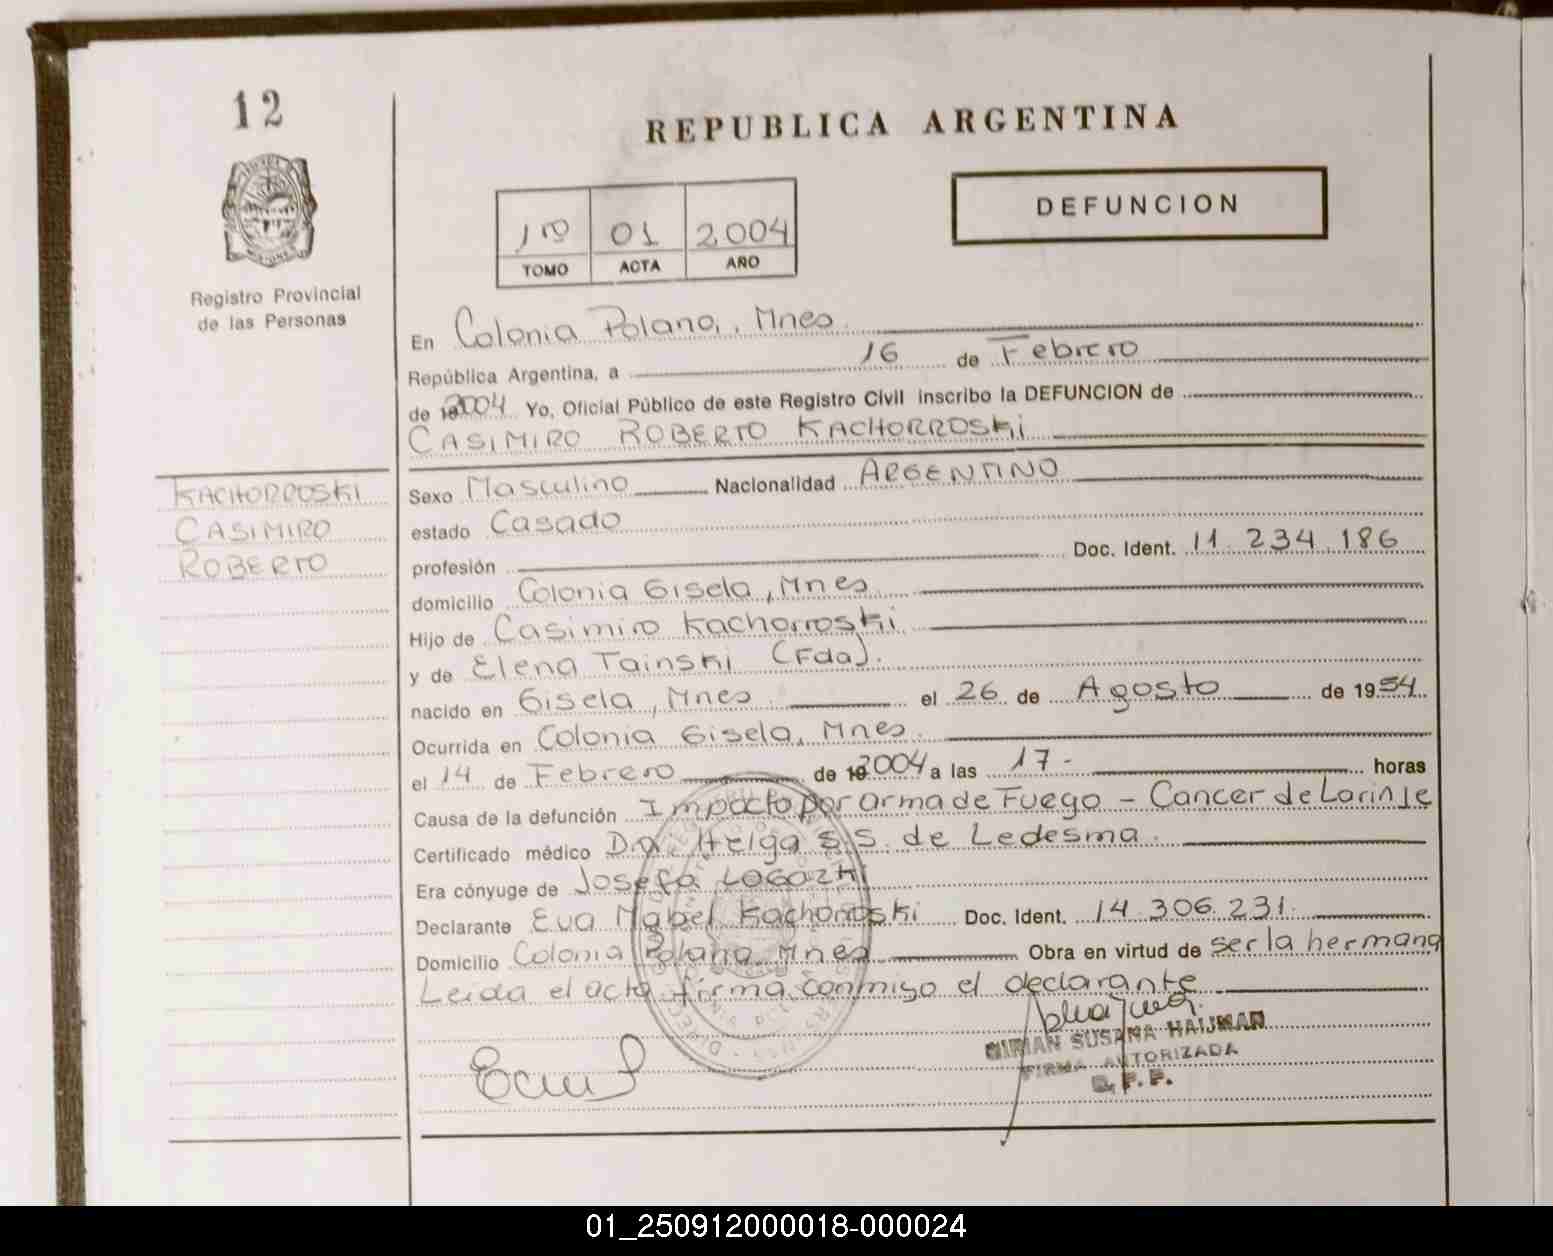 12
REPUBLICA ARGENTINA
DEFUNCION
1ro 01 2004
TOMO ACTA AÑO
Registro Provincial
de las Personas
En Colonia Polana, Mnes
República Argentina, a 16 de Febrero
de 2004 Yo, Oficial Público de este Registro Civil inscribo la DEFUNCION de
CASIMIRO ROBERTO KACHORROSKI
KACHORROSKI
CASIMIRO
ROBERTO
Sexo Masculino Nacionalidad ARGENTINO
estado Casado
profesión Doc. Ident. 11.234.186
domicilio Colonia Gisela, Mnes
Hijo de Casimiro Kachorroski
y de Elena Tainski (Fda).
nacido en Gisela, Mnes el 26 de Agosto de 1954
Ocurrida en Colonia Gisela, Mnes.
el 14 de Febrero de 2004 a las 17- horas
Causa de la defunción Impacto por arma de Fuego - Cancer de Larinje
Certificado médico Dra. Helga S.S. de Ledesma.
Era cónyuge de Josefa
Declarante Eva Mabel Kachorroski Doc. Ident. 14.306.231.
Domicilio Colonia Polana, Mnes Obra en virtud de ser la hermana
Leida el acta firma conmigo el declarante
MIRIAN SUSANA HAIJMAN
FIRMA AUTORIZADA
01_250912000018-000024